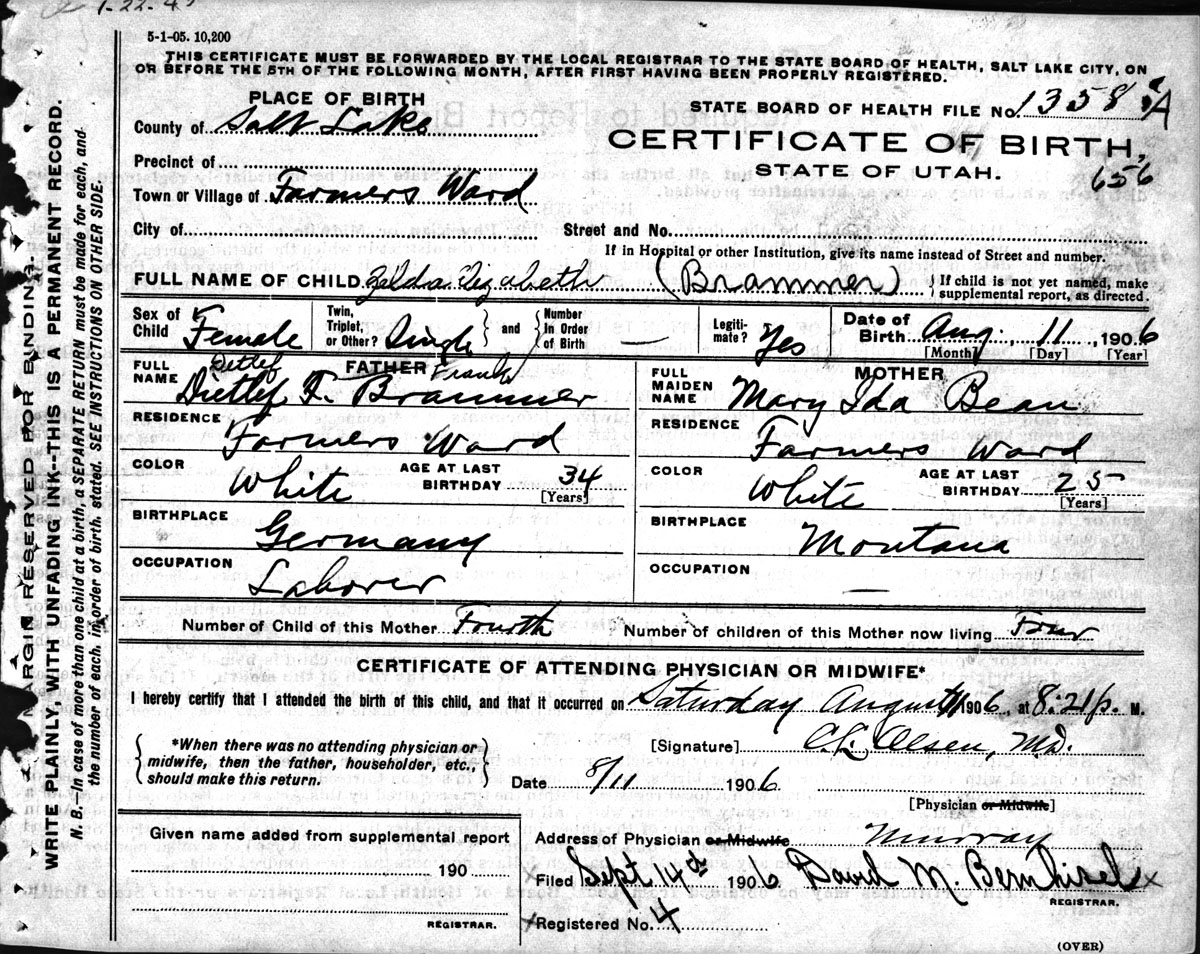 1-22-4
5-1-05. 10,200
THIS CERTIFICATE MUST BE FORWARDED BY THE LOCAL REGISTRAR TO THE STATE BOARD OF HEALTH, SALT LAKE CITY, ON
OR BEFORE THE 5TH OF THE FOLLOWING MONTH, AFTER FIRST HAVING BEEN PROPERLY REGISTERED.
PLACE OF BIRTH
STATE BOARD OF HEALTH FILE No. 1358 A
County of Salt Lake
CERTIFICATE OF BIRTH,
Precinct of
STATE OF UTAH.
656
Town or Village of Farmers Ward
City of
Street and No.
If in Hospital or other Institution, give its name instead of Street and number.
FULL NAME OF CHILD Zelda Elizabeth (Brammer) { If child is not yet named, make
supplemental report, as directed.
Sex of Child Female Twin, Triplet, or Other? Single } and { Number In Order of Birth — Legiti-mate? Yes Date of Birth Aug. 11, 1906
[Month] [Day] [Year]
FATHER
MOTHER
Detlef Frank
FULL NAME Dietlef F. Brammer
FULL MAIDEN NAME Mary Ida Bean
RESIDENCE Farmers Ward
RESIDENCE Farmers Ward
COLOR White AGE AT LAST BIRTHDAY 34 [Years]
COLOR White AGE AT LAST BIRTHDAY 25 [Years]
BIRTHPLACE Germany
BIRTHPLACE Montana
OCCUPATION Laborer
OCCUPATION —
Number of Child of this Mother Fourth Number of children of this Mother now living Four
CERTIFICATE OF ATTENDING PHYSICIAN OR MIDWIFE*
I hereby certify that I attended the birth of this child, and that it occurred on Saturday August 11 1906, at 8:21 p. M.
{ *When there was no attending physician or
midwife, then the father, householder, etc.,
should make this return. }
[Signature] C.L. Olsen, M.D.
Date 8/11 1906
[Physician or Midwife]
Given name added from supplemental report
190
REGISTRAR.
Address of Physician or Midwife Murray
x Filed Sept 14th 1906. David M. Bernhisel x
REGISTRAR.
x Registered No. 4
(OVER)
MARGIN RESERVED FOR BINDING.
WRITE PLAINLY, WITH UNFADING INK--THIS IS A PERMANENT RECORD.
N. B.—In case of more than one child at a birth, a SEPARATE RETURN must be made for each, and
the number of each, in order of birth, stated. SEE INSTRUCTIONS ON OTHER SIDE.